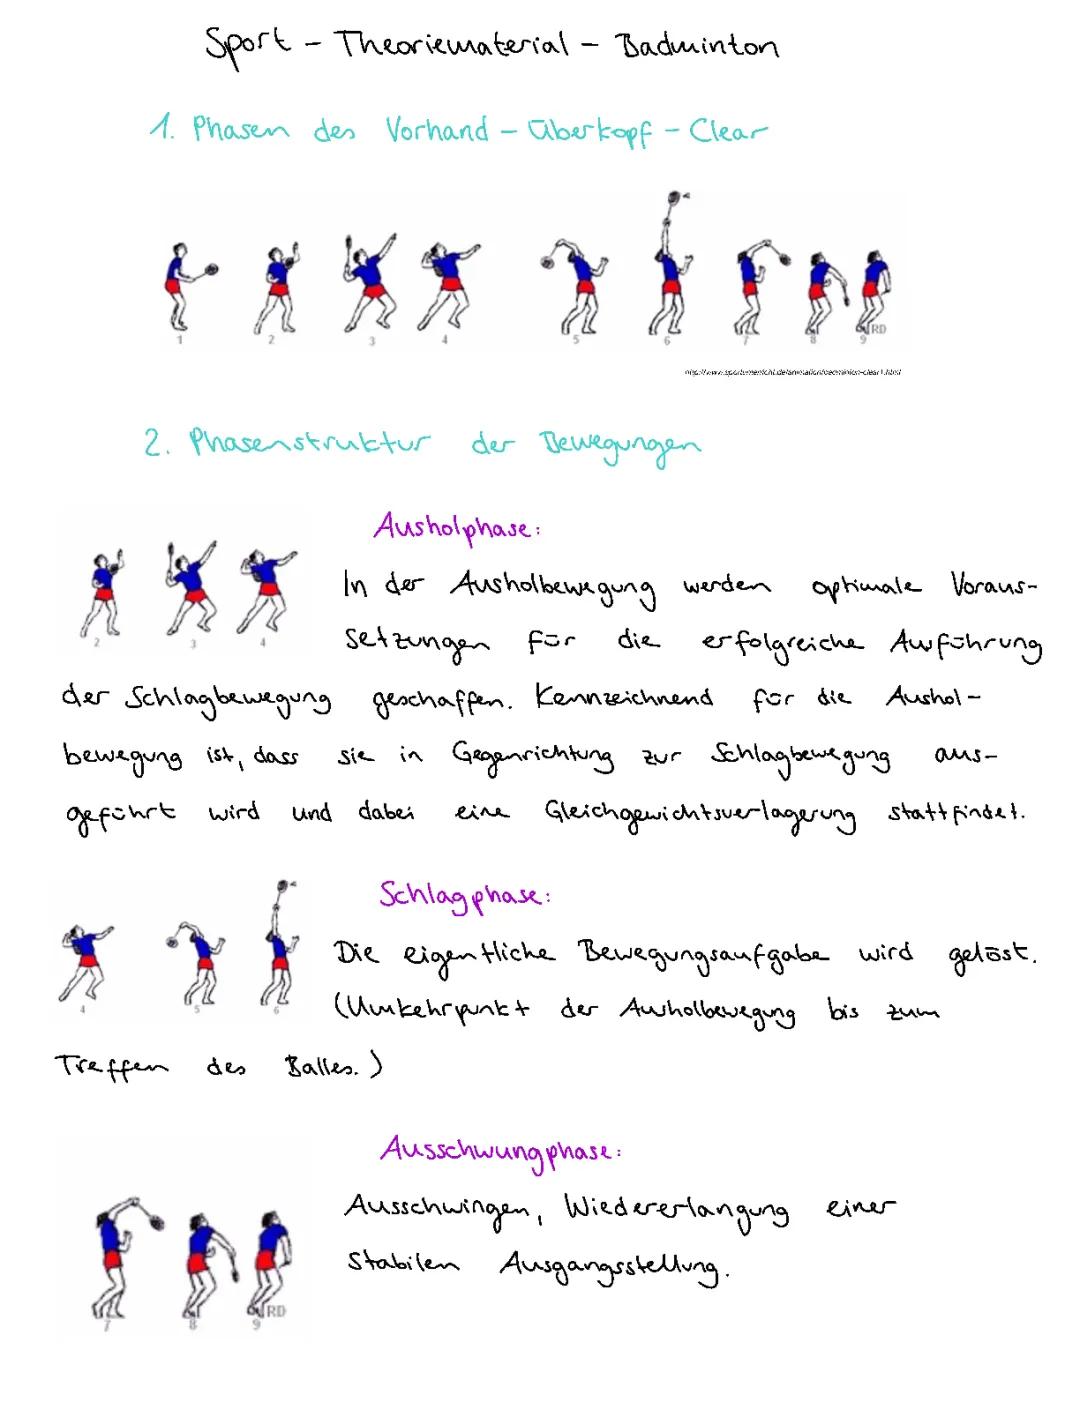 Sport - Theoriematerial - Badminton
1. Phasen des Vorhand - Überkopf - Clear
1 2 3 4 5 6 7 8 9 RD
2. Phasenstruktur der Bewegungen
Ausholphase:
In der Ausholbewegung werden optimale Voraus-
setzungen für die erfolgreiche Ausführung
2 3 4
der Schlagbewegung geschaffen. Kennzeichnend für die Aushol-
bewegung ist, dass sie in Gegenrichtung zur Schlagbewegung aus-
geführt wird und dabei eine Gleichgewichtsverlagerung stattfindet.
Schlagphase:
Die eigentliche Bewegungsaufgabe wird gelöst.
(Umkehrpunkt der Ausholbewegung bis zum
4 5 6
Treffen des Balles.)
Ausschwungphase:
Ausschwingen, Wiedererlangung einer
stabilen Ausgangsstellung.
7 8 9 RD